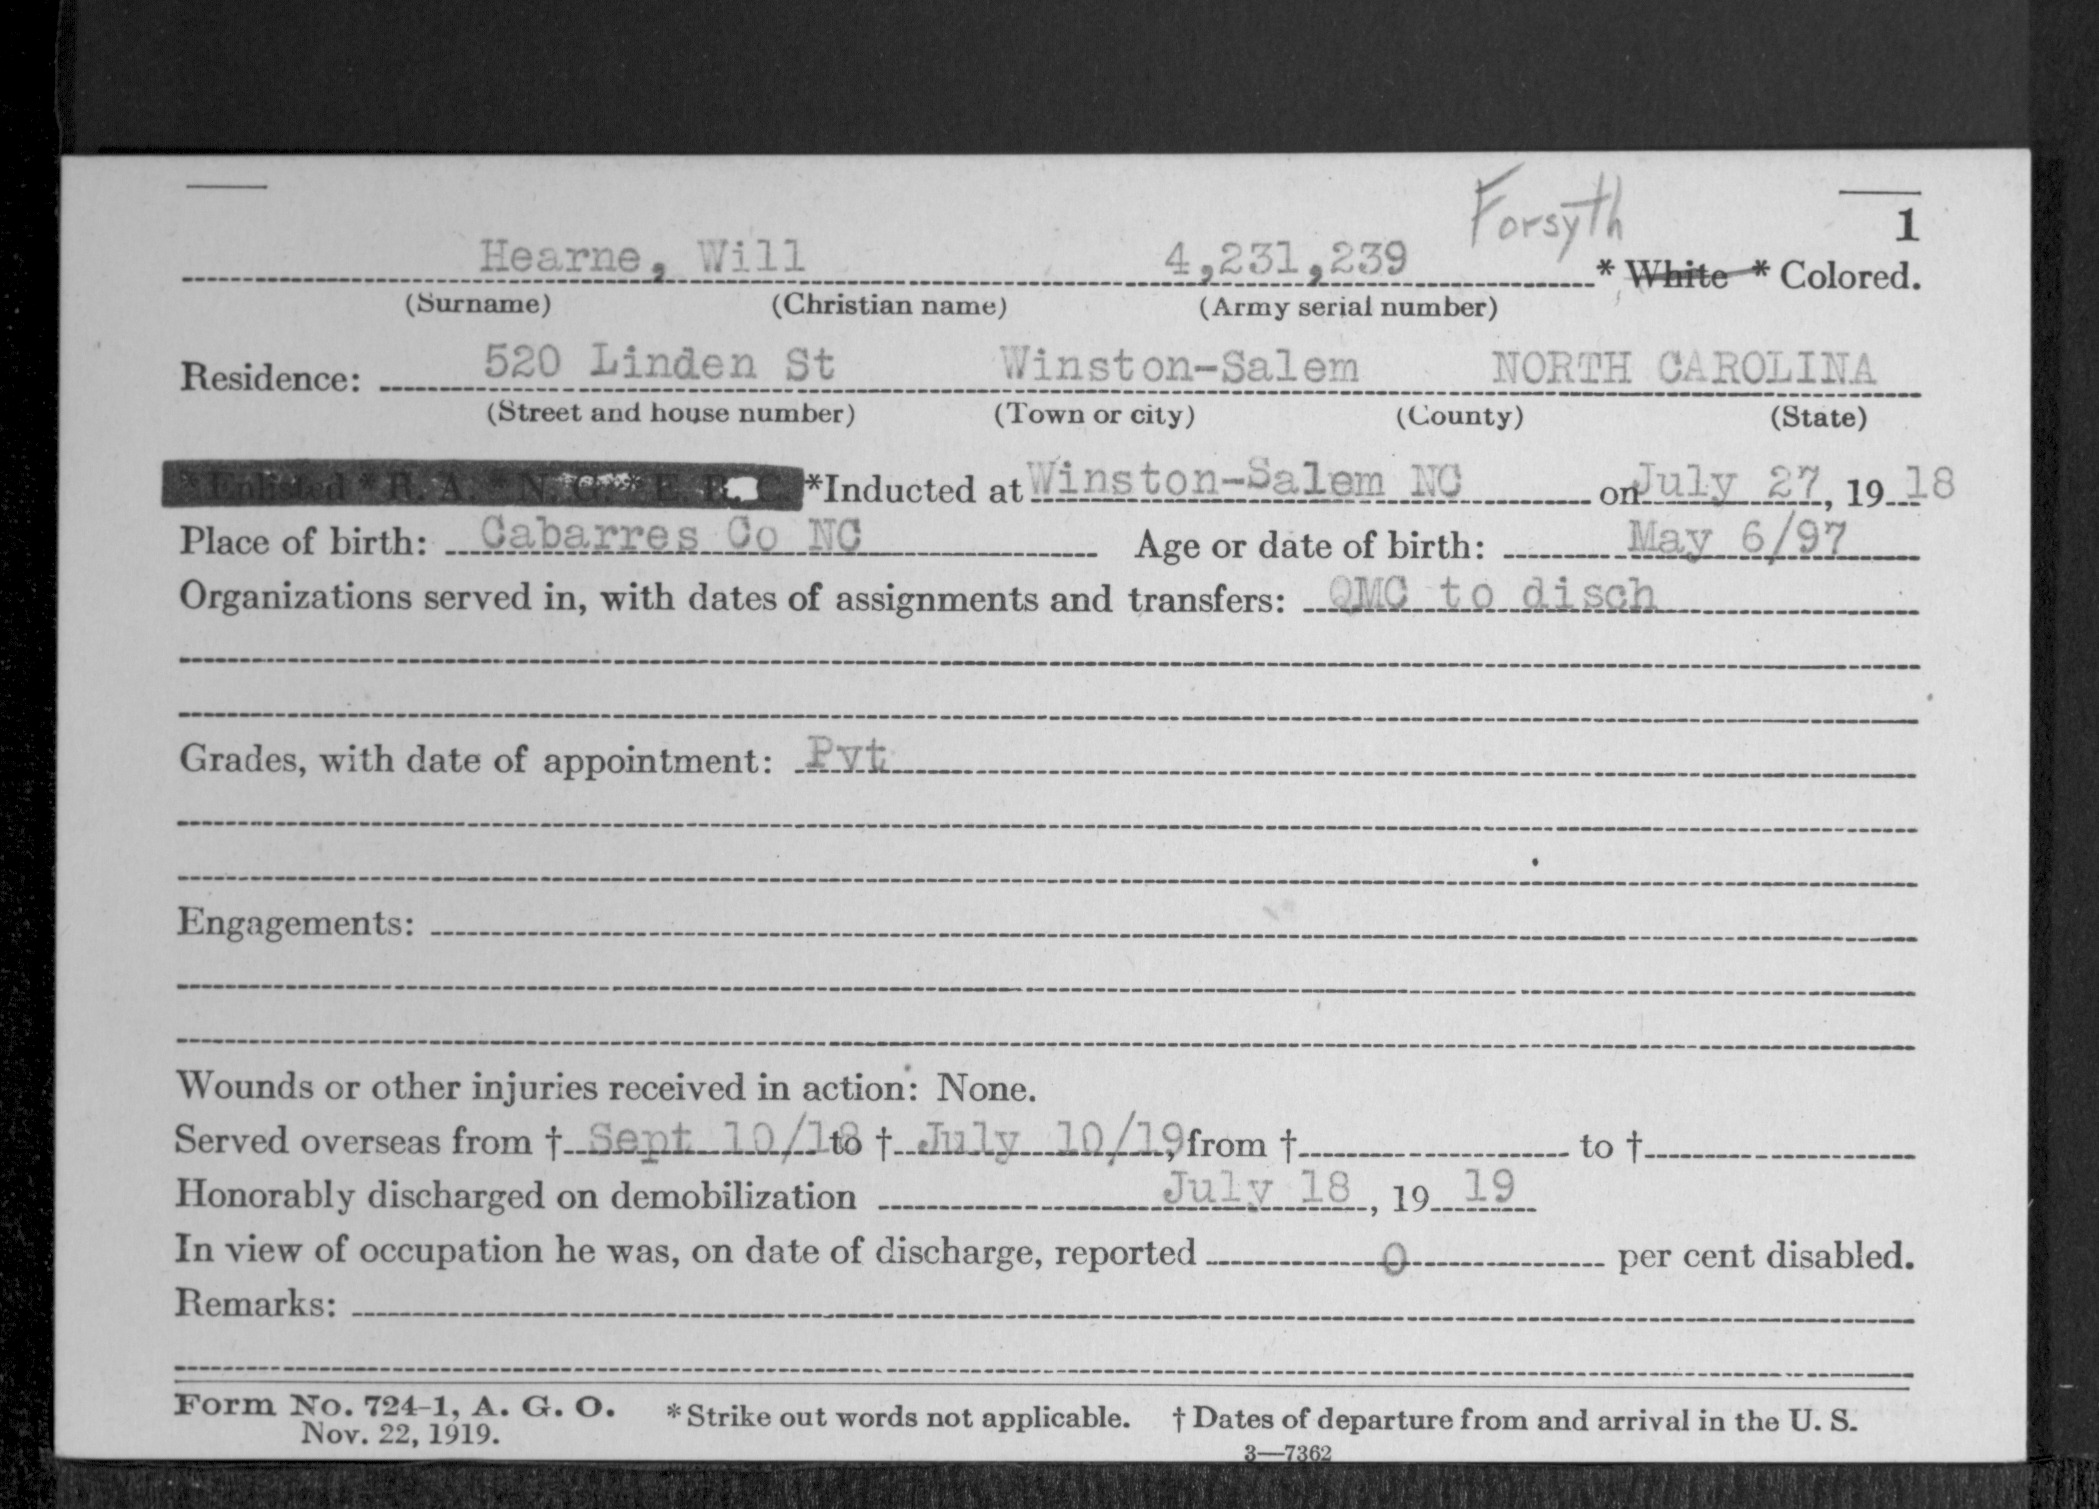 Forsyth
1
Hearne, Will 4,231,239 * White * Colored.
(Surname) (Christian name) (Army serial number)
Residence: 520 Linden St Winston-Salem NORTH CAROLINA
(Street and house number) (Town or city) (County) (State)
*Enlisted *R. A. *N. G. *E. R. C. *Inducted at Winston-Salem NC on July 27, 19 18
Place of birth: Cabarres Co NC Age or date of birth: May 6/97
Organizations served in, with dates of assignments and transfers: QMC to disch
Grades, with date of appointment: Pvt
Engagements:
Wounds or other injuries received in action: None.
Served overseas from † Sept 10/18 to † July 10/19, from † to †
Honorably discharged on demobilization July 18, 19 19
In view of occupation he was, on date of discharge, reported 0 per cent disabled.
Remarks:
Form No. 724-1, A. G. O. *Strike out words not applicable. † Dates of departure from and arrival in the U. S.
Nov. 22, 1919.
3—7362